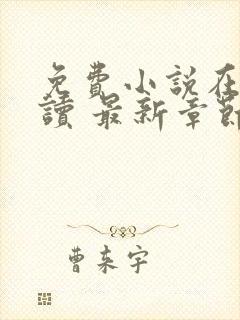 免費小說在
讀 最新章節
曹東宇